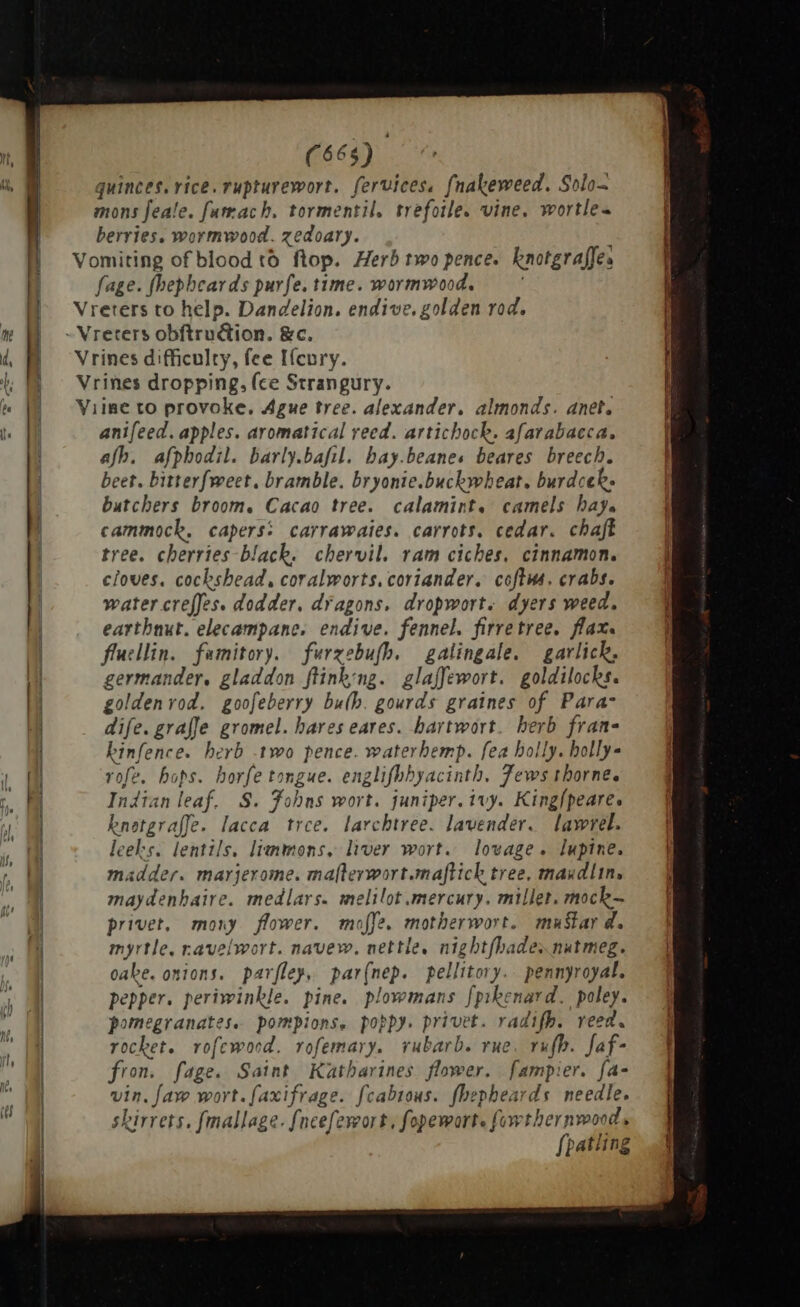 (665)
quinces. rice. rupturewort. ſervices. ſnakeweed. Solo-
mons ſeale. ſumach. tormentil. trefoile. vine. wortle-
berries. wormwood. zedoary.
Vomiting of blood to ſtop. Herb two pence. knotgraſſe.
ſage. ſhepheards purſe. time. wormwood.
Vreters to help. Dandelion. endive. golden rod.
Vreters obſtruction. &c.
Vrines difficulty, ſee Iſcury.
Vrines dropping, ſee Strangury.
Vrine to provoke. Ague tree. alexander. almonds. anet.
aniſeed. apples. aromatical reed. artichock. aſarabacca.
aſh. aſphodil. barly. baſil. bay. beanes beares breech.
beet. bitterſweet. bramble. bryonie. buckwheat. burdcek.
butchers broom. Cacao tree. calamint. camels hay.
cammock. capers: carrawaies. carrots. cedar. chaſt
tree. cherries black. chervil. ram ciches. cinnamon.
cloves. cockshead, coralworts. coriander. coſtus. crabs.
water creſſes. dodder. dragons. dropwort. dyers weed.
earthnut. elecampane. endive. fennel. firretree. flax.
fluellin. fumitory. furzebuſh. galingale. garlick.
germander. gladdon ſtinking. glaſſewort. goldilocks.
golden rod. gooſeberry buſh. gourds graines of Para-
diſe. graſſe gromel. hares eares. hartwort. herb fran-
kinſence. herb two pence. waterhemp. ſea holly. holly-
roſe. hops. horſe tongue. engliſhhyacinth. Jews thorne.
Indian leaf. S. Johns wort. juniper. ivy. Kingſpeare.
knotgraſſe. lacca tree. larchtree. lavender. lawrel.
leeks. lentils. limmons, liver wort. lovage. lupine.
madder. marjerome. maſterwort. maſtick tree, maudlin.
maydenhaire. medlars. melilot. mercury. millet. mock-
privet. mony flower. moſſe. motherwort. mustard.
myrtle. navelwort. navew. nettle. nightſhade. nutmeg.
oake. onions. parſley, parſnep. pellitory. pennyroyal.
pepper. periwinkle. pine. plowmans ſpikenard. poley.
pomegranates. pompions, poppy. privet. radiſh. reed.
rocket. roſewood. roſemary. rubarb. rue. ruſh. ſaf-
fron. ſage. Saint Katharines flower. ſampier. ſa-
vin. ſaw wort. ſaxifrage. ſcabious. ſhepheards needle.
skirrets. ſmallage. ſneeſewort, ſopewort. ſowthernwood.
ſpatling